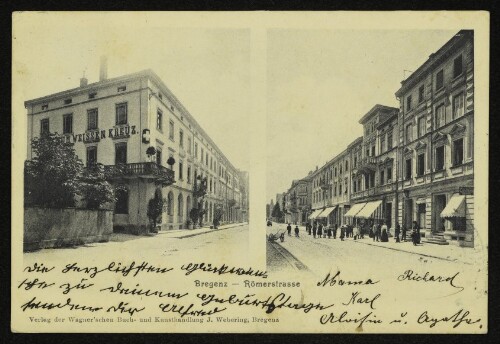 WEISSEN KREUZ.
Bregenz – Römerstrasse
Die herzlichsten Glückwün-
sche zu deinem Geburtstage
senden dir Alfred
Mama Richard
Karl
Aloisia u. Agathe
Verlag der Wagner'schen Buch- und Kunsthandlung J. Webering, Bregenz